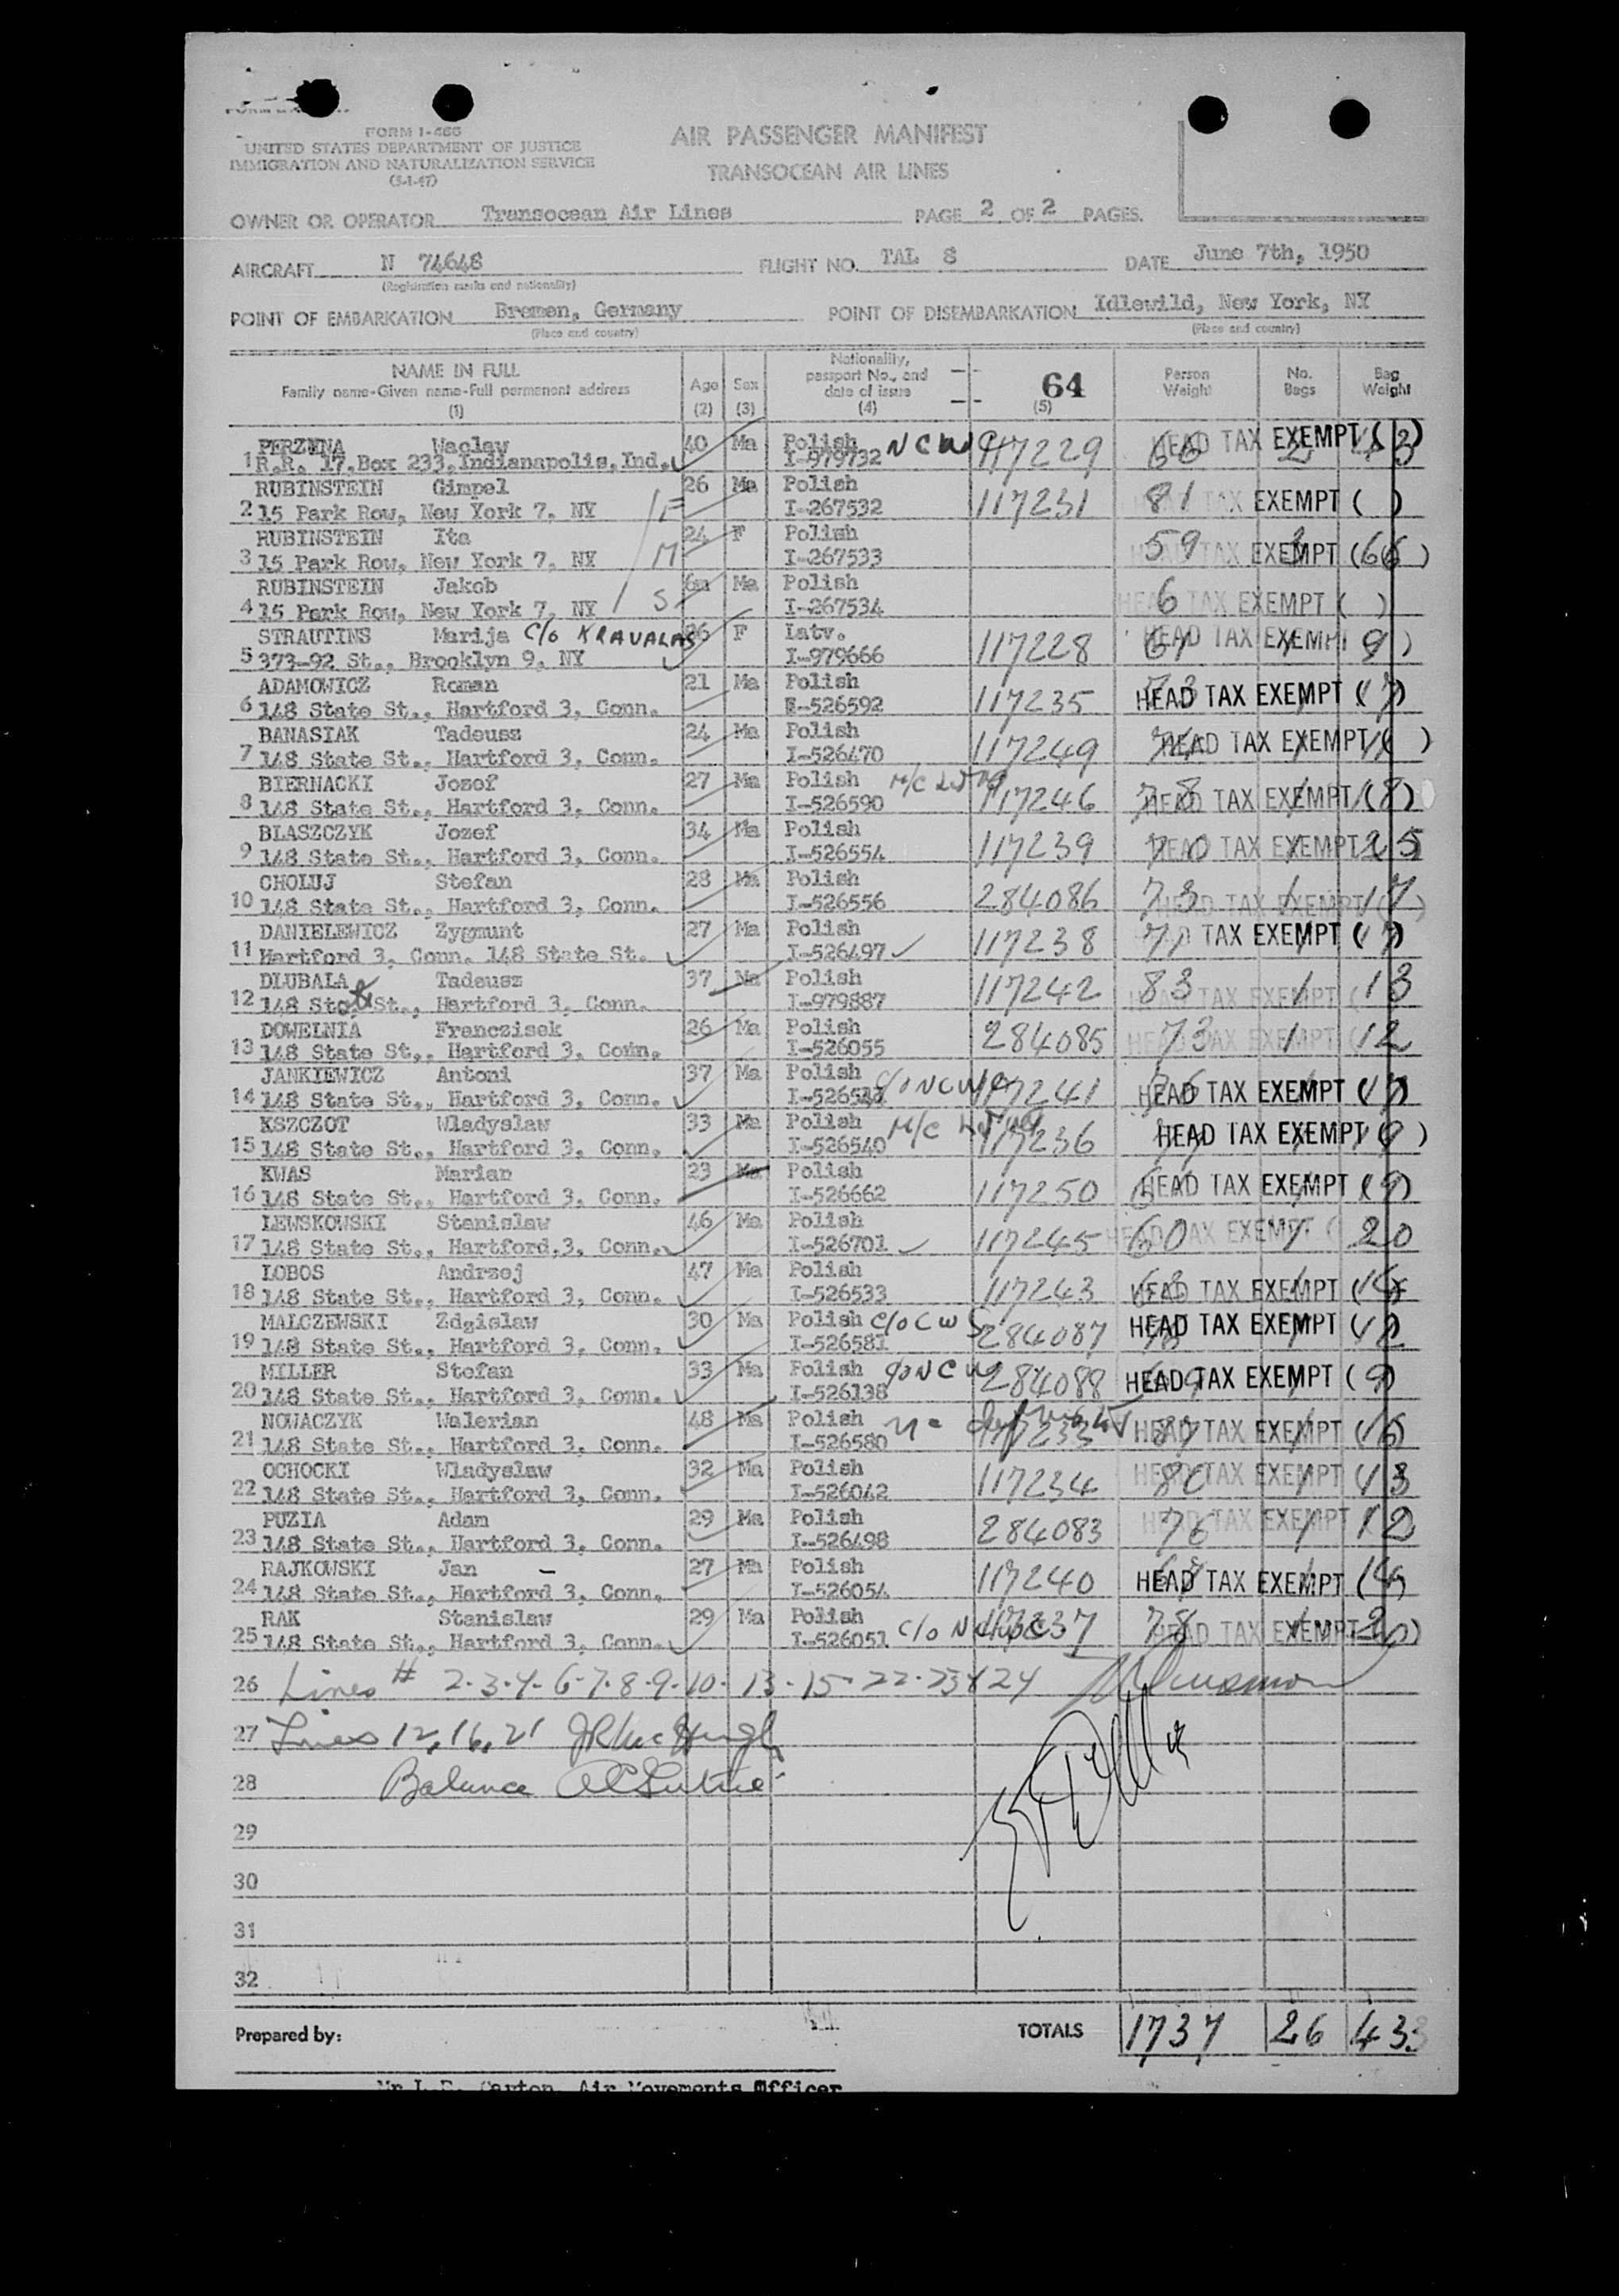 FORM I-466
UNITED STATES DEPARTMENT OF JUSTICE
IMMIGRATION AND NATURALIZATION SERVICE
(5-1-47)
AIR PASSENGER MANIFEST
TRANSOCEAN AIR LINES
OWNER OR OPERATOR Transocean Air Lines PAGE 2 OF 2 PAGES.
AIRCRAFT N 74648 FLIGHT NO. TAL 8 DATE June 7th, 1950
(Registration marks and nationality)
POINT OF EMBARKATION Bremen, Germany POINT OF DISEMBARKATION Idlewild, New York, NY
(Place and country) (Place and country)
NAME IN FULL Age Sex Nationality, passport No., and date of issue 64 Person Weight No. Bags Bag Weight
Family name-Given name-Full permanent address
(1) (2) (3) (4) (5)
PERZYNA Waclaw 40 Ma Polish NCWC 117229 66 2 HEAD TAX EXEMPT ( )
1 R.R. 17,Box 233,Indianapolis,Ind. I-979732
RUBINSTEIN Gimpel 26 Ma Polish 117231 81 TAX EXEMPT ( )
2 15 Park Row, New York 7, NY F I-267532
RUBINSTEIN Ita 24 F Polish 59 HEAD TAX EXEMPT (66)
3 15 Park Row, New York 7, NY M I-267533
RUBINSTEIN Jakob 6m Ma Polish 6 HEAD TAX EXEMPT ( )
4 15 Park Row, New York 7, NY S I-267534
STRAUTINS Marija C/o KRAVALAS 26 F Latv. 117228 61 1 9 HEAD TAX EXEMPT )
5 373-92 St., Brooklyn 9, NY I-979666
ADAMOWICZ Roman 21 Ma Polish 117235 HEAD TAX EXEMPT (17)
6 148 State St., Hartford 3, Conn. I-526592
BANASIAK Tadeusz 24 Ma Polish 117249 HEAD TAX EXEMPT ( )
7 148 State St., Hartford 3, Conn. I-526470
BIERNACKI Josef 27 Ma Polish 117246 78 1 HEAD TAX EXEMPT (8)
8 148 State St., Hartford 3, Conn. I-526590
BLASZCZYK Jozef 34 Ma Polish 117239 70 1 25 HEAD TAX EXEMPT
9 148 State St., Hartford 3, Conn. I-526554
CHOLUJ Stefan 28 Ma Polish 284086 73 1 17 HEAD TAX EXEMPT ( )
10 148 State St., Hartford 3, Conn. I-526556
DANIELEWICZ Zygmunt 27 Ma Polish 117238 71 1 17 HEAD TAX EXEMPT ( )
11 Hartford 3, Conn. 148 State St. I-526497
DLUBALA Tadeusz 37 Ma Polish 117242 83 1 13 HEAD TAX EXEMPT (
12 148 State St., Hartford 3, Conn. I-979887
DOWELNIA Franczisek 26 Ma Polish 284085 73 1 12 HEAD TAX EXEMPT (
13 148 State St., Hartford 3, Conn. I-526055
JANKIEWICZ Antoni 37 Ma Polish c/o NCWC 117241 HEAD TAX EXEMPT (17)
14 148 State St., Hartford 3, Conn.
KSZCZOT Wladyslaw 33 Ma Polish 117236 HEAD TAX EXEMPT (9)
15 148 State St., Hartford 3, Conn. I-526540
KWAS Marian 23 Ma Polish 117250 HEAD TAX EXEMPT (9)
16 148 State St., Hartford 3, Conn. I-526662
LEWSKOWSKI Stanislaw 46 Ma Polish 117245 60 1 20 HEAD TAX EXEMPT (
17 148 State St., Hartford,3, Conn. I-526701
LOBOS Andrzej 47 Ma Polish 117243 63 1 HEAD TAX EXEMPT (
18 148 State St., Hartford 3, Conn. I-526533
MALCZEWSKI Zdgislaw 30 Ma Polish C/o CWS 284087 1 12 HEAD TAX EXEMPT (
19 148 State St., Hartford 3, Conn. I-526581
MILLER Stefan 33 Ma Polish c/o NCW 284088 HEAD TAX EXEMPT (9)
20 148 State St., Hartford 3, Conn. I-526138
NOWACZYK Walerian 48 Ma Polish 117233 HEAD TAX EXEMPT (16)
21 148 State St., Hartford 3, Conn. I-526580
OCHOCKI Wladyslaw 32 Ma Polish 117234 80 1 13 HEAD TAX EXEMPT
22 148 State St., Hartford 3, Conn. I-526042
PUZIA Adam 29 Ma Polish 284083 76 1 12 HEAD TAX EXEMPT
23 148 State St., Hartford 3, Conn. I-526498
RAJKOWSKI Jan 27 Ma Polish 117240 68 1 HEAD TAX EXEMPT (14)
24 148 State St., Hartford 3, Conn. I-526054
RAK Stanislaw 29 Ma Polish C/o NCWC 117237 78 1 20 HEAD TAX EXEMPT )
25 148 State St., Hartford 3, Conn. I-526051
26 Lines # 2-3-4-6-7-8-9-10-13-15-22-23 & 24
27 Lines 12, 16, 21 JR McHugh
28 Balance
29
30
31
32
Prepared by: TOTALS 1737 26 433
Air Movements Officer